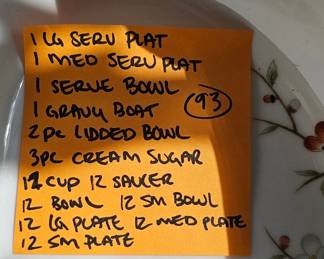 1 LG SERV PLAT
1 MED SERV PLAT
1 SERVE BOWL
1 GRAVY BOAT
93
2PC LIDDED BOWL
3PC CREAM SUGAR
12 CUP 12 SAUCER
12 BOWL 12 SM BOWL
12 LG PLATE 12 MED PLATE
12 SM PLATE